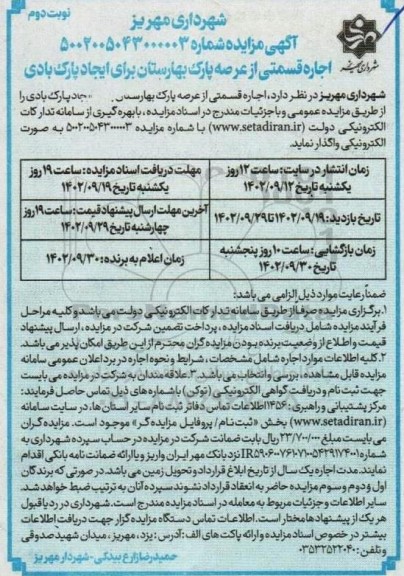 نوبت دوم
شهرداری مهریز
آگهی مزایده شماره ۵۰۰۲۰۰۵۰۴۳۰۰۰۰۰۳
اجاره قسمتی از عرصه پارک بهارستان برای ایجاد پارک بادی
شهرداری مهریز
شهرداری مهریز در نظر دارد، اجاره قسمتی از عرصه پارک بهارستان جاد پارک بادی را
از طریق مزایده عمومی و با جزئیات مندرج در اسناد مزایده، با بهره گیری از سامانه تدارکات
الکترونیکی دولت (www.setadiran.ir) با شماره مزایده ۵۰۰۲۰۰۵۰۴۳۰۰۰۰۰۳ به صورت
الکترونیکی واگذار نماید.
زمان انتشار در سایت: ساعت ۱۲ روز
یکشنبه تاریخ ۱۴۰۲/۰۹/۱۲
مهلت دریافت اسناد مزایده: ساعت ۱۹ روز
یکشنبه تاریخ ۱۴۰۲/۰۹/۱۹
تاریخ بازدید: ۱۴۰۲/۰۹/۱۹ تا ۱۴۰۲/۰۹/۲۹
آخرین مهلت ارسال پیشنهاد قیمت: ساعت ۱۹ روز
چهارشنبه تاریخ ۱۴۰۲/۰۹/۲۹
زمان بازگشایی: ساعت ۱۰ روز پنجشنبه
تاریخ ۱۴۰۲/۰۹/۳۰
زمان اعلام به برنده: ۱۴۰۲/۰۹/۳۰
ضمناً رعایت موارد ذیل الزامی می باشد:
۱. برگزاری مزایده صرفاً از طریق سامانه تدارکات الکترونیکی دولت می باشد و کلیه مراحل
فرآیند مزایده شامل دریافت اسناد مزایده، پرداخت تضمین شرکت در مزایده، ارسال پیشنهاد
قیمت و اطلاع از وضعیت برنده بودن مزایده گران محترم از این طریق امکان پذیر می باشد.
۲. کلیه اطلاعات موارد اجاره شامل مشخصات، شرایط و نحوه اجاره در برد اعلان عمومی سامانه
مزایده قابل مشاهده، بررسی و انتخاب می باشد. ۳. علاقه مندان به شرکت در مزایده می بایست
جهت ثبت نام و دریافت گواهی الکترونیکی (توکن) با شماره های ذیل تماس حاصل فرمایند:
مرکز پشتیبانی و راهبری: ۱۴۵۶ اطلاعات تماس دفاتر ثبت نام سایر استان ها، در سایت سامانه
(www.setadiran.ir) بخش «ثبت نام / پروفایل مزایده گر» موجود است. مزایده گران
می بایست مبلغ ۲۳/۷۰۰/۰۰۰ ریال بابت ضمانت شرکت در مزایده در حساب سپرده شهرداری به
شماره نزد بانک مهر ایران واریز و یا ارائه ضمانت نامه بانکی اقدام
نمایند. مدت اجاره یک سال از تاریخ ابلاغ قرارداد و تحویل زمین می باشد. در صورتی که برندگان
اول و دوم و سوم مزایده حاضر به انعقاد قرارداد نشوند سپرده آنان به ترتیب ضبط خواهد شد.
سایر اطلاعات و جزئیات مربوط به معامله در اسناد مزایده مندرج است. شهرداری در رد یا قبول
هر یک از پیشنهادها مختار است. اطلاعات تماس دستگاه مزایده گزار جهت دریافت اطلاعات
بیشتر در خصوص اسناد مزایده و ارائه پاکت های الف: آدرس: یزد، مهریز، میدان شهید صدوقی
و تلفن: ۰۳۵۳۲۵۲۲۰۴۰
حمیدرضا زارع بیدکی - شهردار مهریز